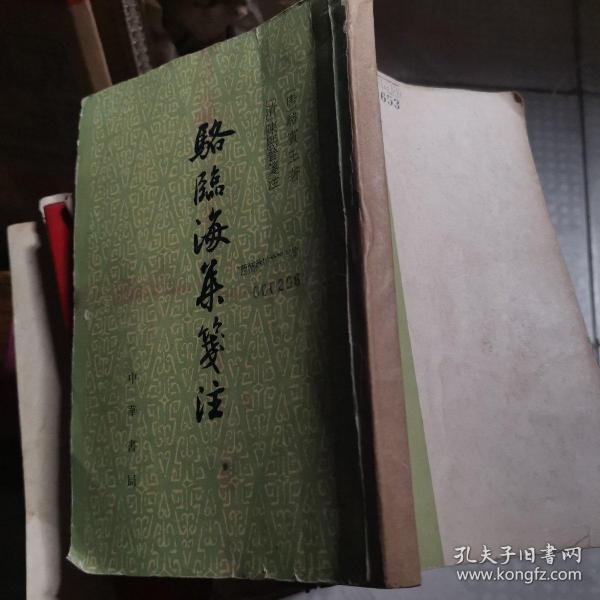 唐駱賓王著
清陳熙晉箋注
駱臨海集箋注
中華書局
653
孔夫子旧书网
www.kongfz.com